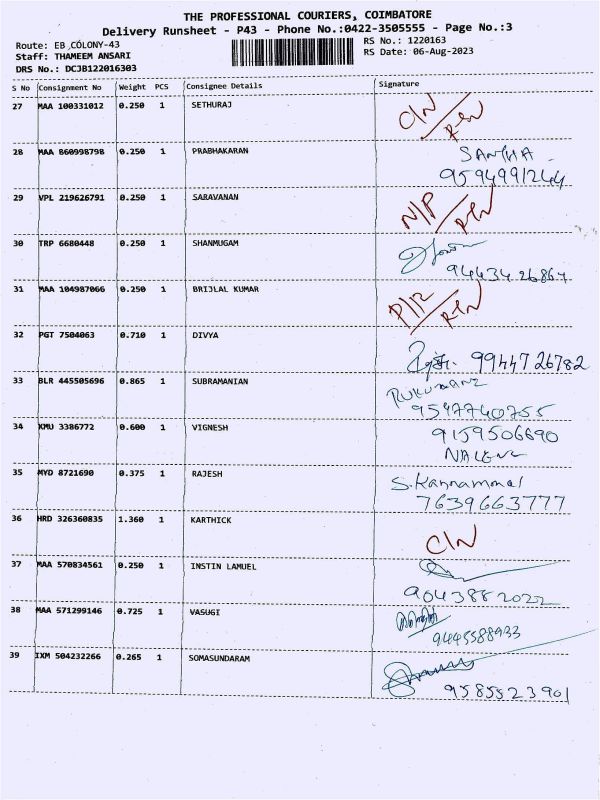 THE PROFESSIONAL COURIERS, COIMBATORE
Delivery Runsheet - P43 - Phone No.:0422-3505555 - Page No.:3
Route: EB COLONY-43
RS No.: 1220163
Staff: THAMEEM ANSARI
RS Date: 06-Aug-2023
DRS No.: DCJB122016303
S No Consignment No Weight PCS Consignee Details Signature
27 MAA 100331012 0.250 1 SETHURAJ C/N / RTN
28 MAA 860998798 0.250 1 PRABHAKARAN SANTHA
9594991244
29 VPL 219626791 0.250 1 SARAVANAN N/P / RTN
30 TRP 6680448 0.250 1 SHANMUGAM
94434 26867
31 MAA 104987066 0.250 1 BRIJLAL KUMAR P/R / RTN
32 PGT 7504063 0.710 1 DIVYA
9944726782
33 BLR 445505696 0.865 1 SUBRAMANIAN RUKUMANI
9597740755
34 KMU 3386772 0.600 1 VIGNESH 9159506690
35 MYD 8721690 0.375 1 RAJESH S. Kannammal
7639663777
36 HRD 326360835 1.360 1 KARTHICK C/N
37 MAA 570834561 0.250 1 INSTIN LAMUEL
9043882022
38 MAA 571299146 0.725 1 VASUGI
9445588933
39 IXM 504232266 0.265 1 SOMASUNDARAM
9585523901